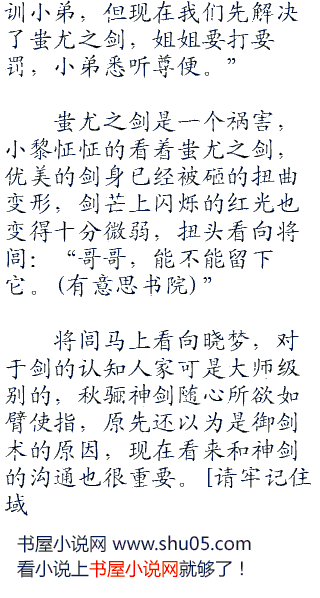 训小弟，但现在我们先解决
了蚩尤之剑，姐姐要打要
罚，小弟悉听尊便。”
蚩尤之剑是一个祸害，
小黎怔怔的看着蚩尤之剑，
优美的剑身已经被砸的扭曲
变形，剑芒上闪烁的红光也
变得十分微弱，扭头看向将
闾：“哥哥，能不能留下
它。(有意思书院)”
将闾马上看向晓梦，对
于剑的认知人家可是大师级
别的，秋骊神剑随心所欲如
臂使指，原先还以为是御剑
术的原因，现在看来和神剑
的沟通也很重要。[请牢记住
域
书屋小说网 www.shu05.com
看小说上书屋小说网就够了！